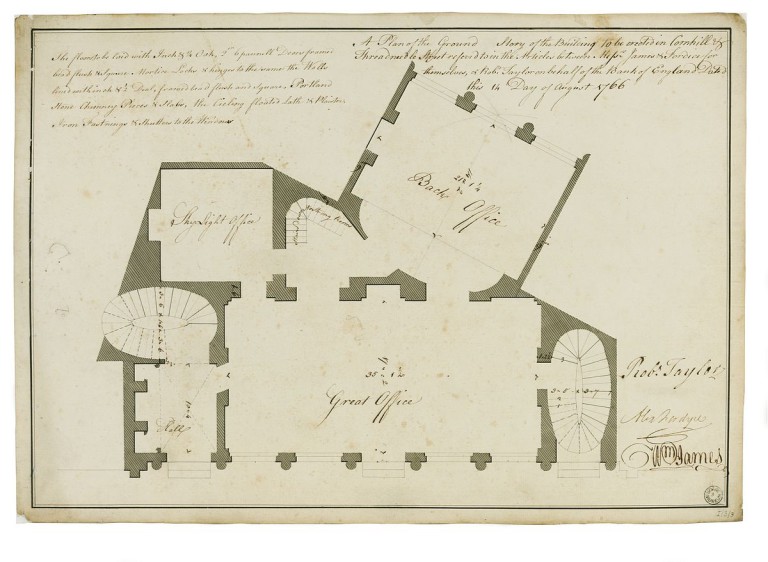 The floors to be laid with Inch & ¼ Oak, 2 In 6 pannell'd Doors framed
bead flush & Square Mortice Locks & hinges to the same the Walls
lined with inch & ¼ Deal, framed bead flush and Square, Portland
Stone Chimney Pieces & Slabs, the Cieling floated Lath & Plaister,
Iron Fastnings & Shutters to the Windows
A Plan of the Ground Story of the Building to be erected in Cornhill &
Threadneedle Street referd to in the Articles between Messrs James & Fordice for
themselves, & Robt Taylor on behalf of the Bank of England Dated
this 14 Day of August 1766
Back Office
Sky Light Office
Great Office
Hall
Robt Taylor
Alex Fordyce
Wm James